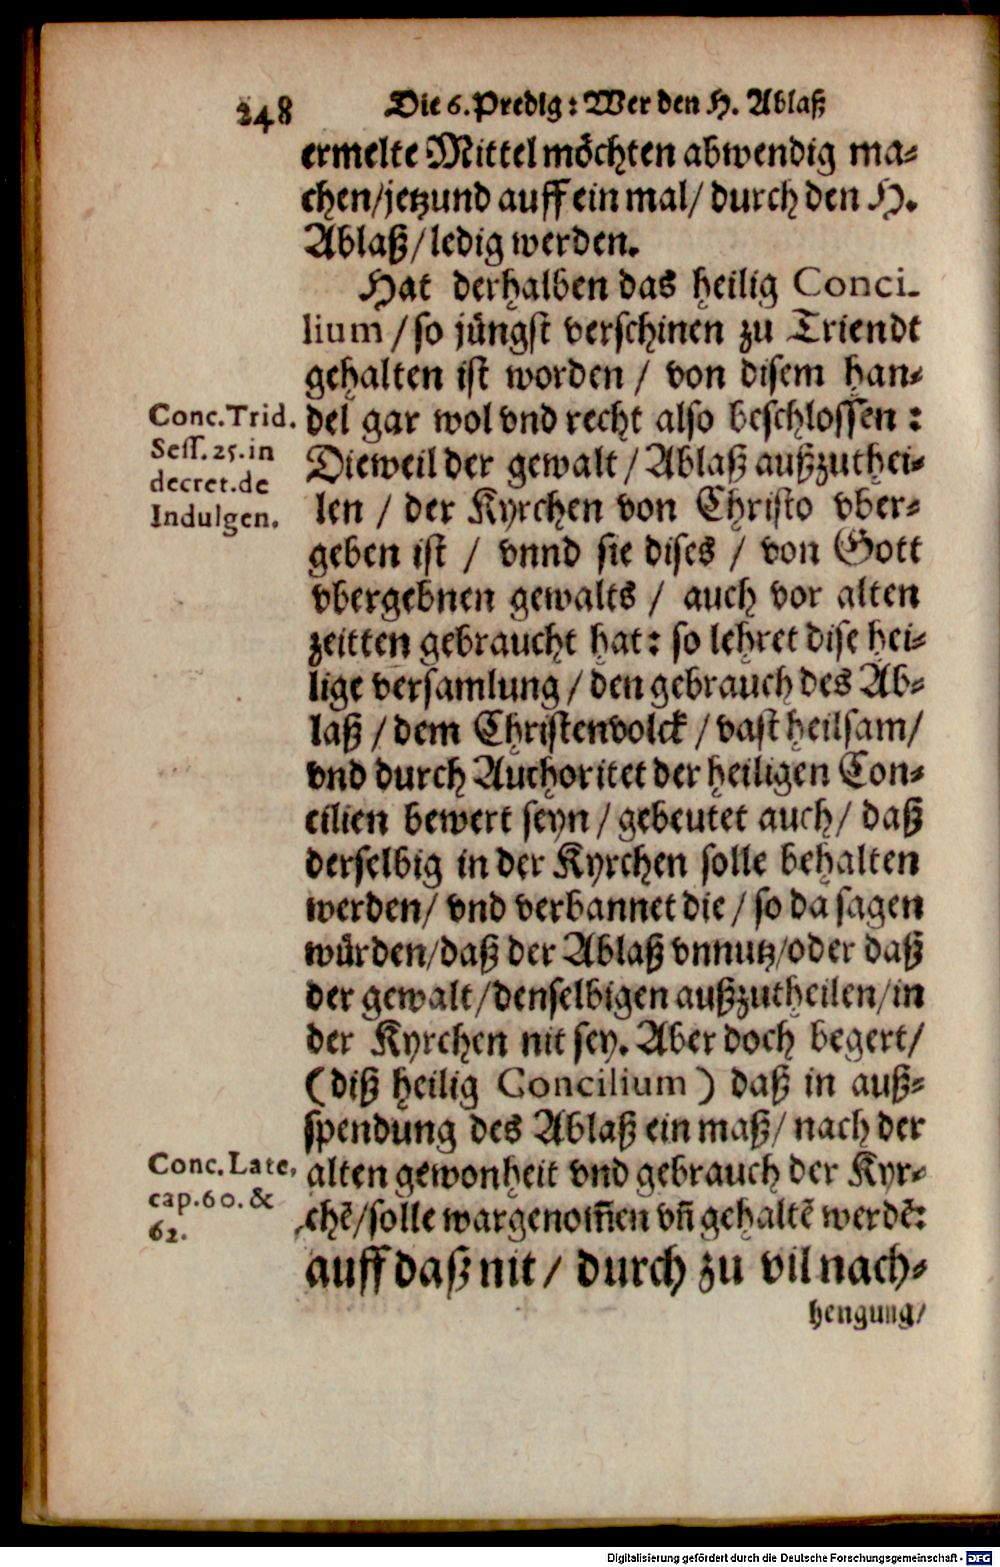 248 Die 6. Predig: Wer den H. Ablaß
ermelte Mittel möchten abwendig ma-
chen/jetzund auff ein mal/ durch den H.
Ablaß/ledig werden.
Hat derhalben das heilig Conci-
lium/so jüngst verschinen zu Triendt
gehalten ist worden / von disem han-
Conc. Trid.
Sess. 25. in
decret. de
Indulgen.
del gar wol vnd recht also beschlossen:
Dieweil der gewalt / Ablaß außzuthei-
len / der Kyrchen von Christo vber-
geben ist / vnnd sie dises / von Gott
vbergebnen gewalts / auch vor alten
zeitten gebraucht hat: so lehret dise hei-
lige versamlung / den gebrauch des Ab-
laß / dem Christenvolck / vast heilsam/
vnd durch Authoritet der heiligen Con-
cilien bewert seyn / gebeutet auch / daß
derselbig in der Kyrchen solle behalten
werden/ vnd verbannet die / so da sagen
würden/daß der Ablaß vnnutz/oder daß
der gewalt/denselbigen außzutheilen/in
der Kyrchen nit sey. Aber doch begert/
(diß heilig Concilium) daß in auß-
spendung des Ablaß ein maß/ nach der
Conc. Late,
cap. 60. &
62.
alten gewonheit vnd gebrauch der Kyr-
chē/solle wargenom̃en vñ gehaltē werdē:
auff daß nit / durch zu vil nach-
hengung/
Digitalisierung gefördert durch die Deutsche Forschungsgemeinschaft - DFG